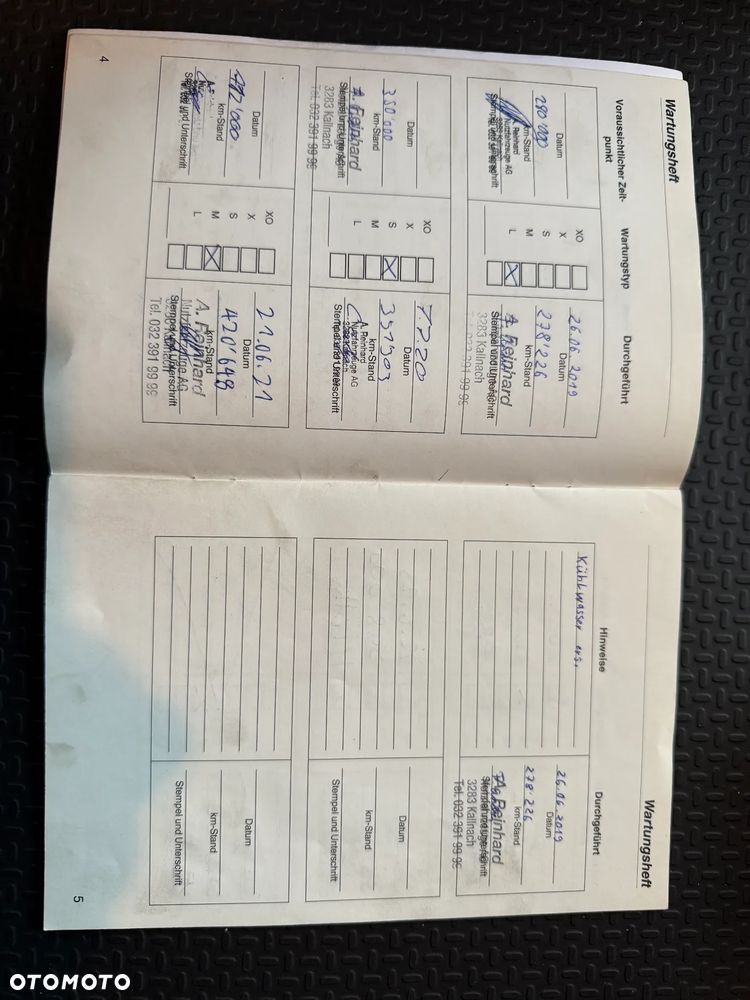 Wartungsheft
Voraussichtlicher Zeit-
punkt
Wartungstyp
Durchgeführt
Datum
290'000
km-Stand
Reinhard
Nutzfahrzeuge AG
Stempel und Unterschrift
XO
X
S
M
L
26.06.2019
Datum
278'226
km-Stand
A. Reinhard
Stempel und Unterschrift
3283 Kallnach
Tel. 032 391 99 99
Datum
350'000
km-Stand
A. Reinhard
Stempel und Unterschrift
3283 Kallnach
Tel. 032 391 99 99
XO
X
S
M
L
7.7.20
Datum
351903
km-Stand
A. Reinhard
Nutzfahrzeuge AG
Stempel und Unterschrift
Datum
km-Stand
Stempel und Unterschrift
XO
X
S
M
L
21.06.21
Datum
420'648
km-Stand
A. Reinhard
Nutzfahrzeuge AG
Stempel und Unterschrift
3283 Kallnach
Tel. 032 391 99 99
4
Wartungsheft
Hinweise
Durchgeführt
Kühlwasser ers.
26.06.2019
Datum
278.226
km-Stand
A. Reinhard
Stempel und Unterschrift
3283 Kallnach
Tel. 032 391 99 99
Datum
km-Stand
Stempel und Unterschrift
Datum
km-Stand
Stempel und Unterschrift
5
OTOMOTO